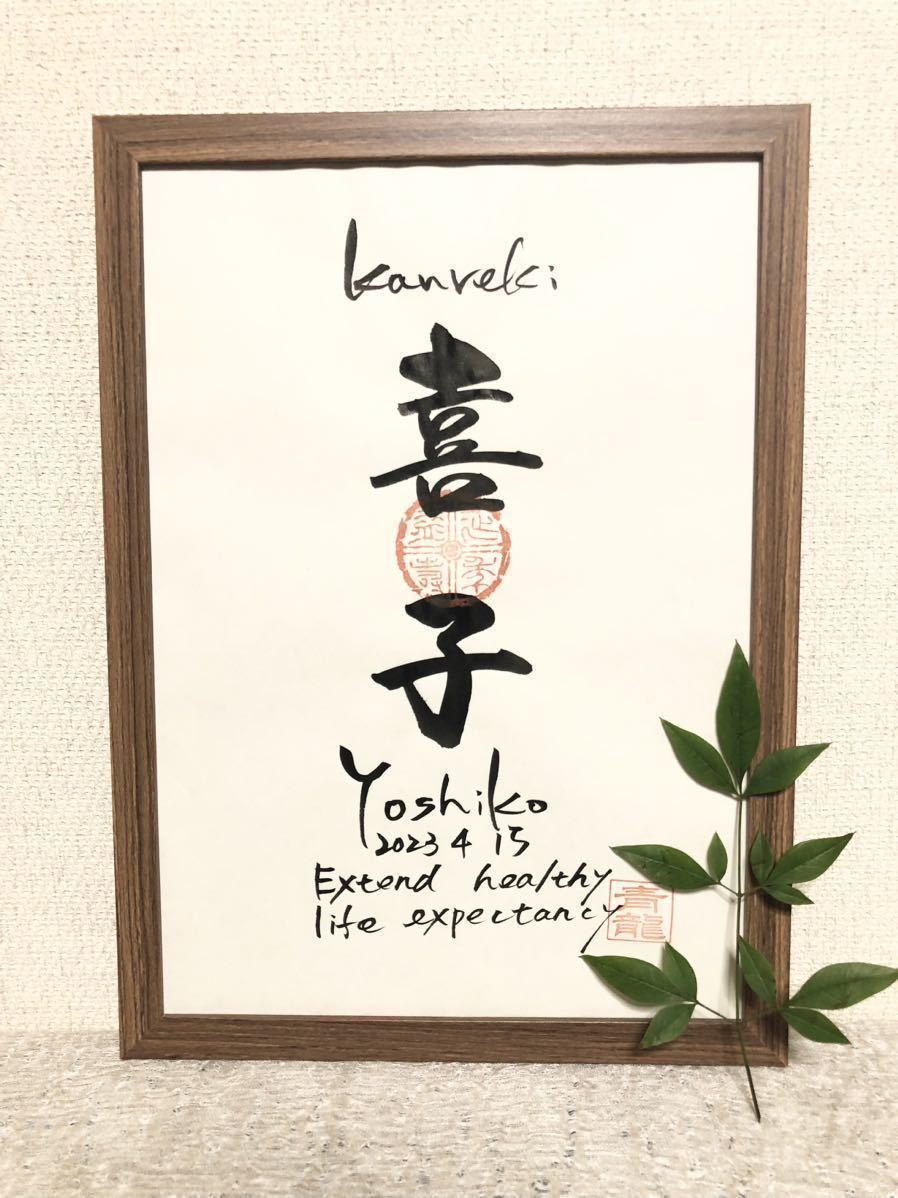 Kanreki
喜
子
Yoshiko
2023 4 15
Extend healthy
life expectancy
青
龍